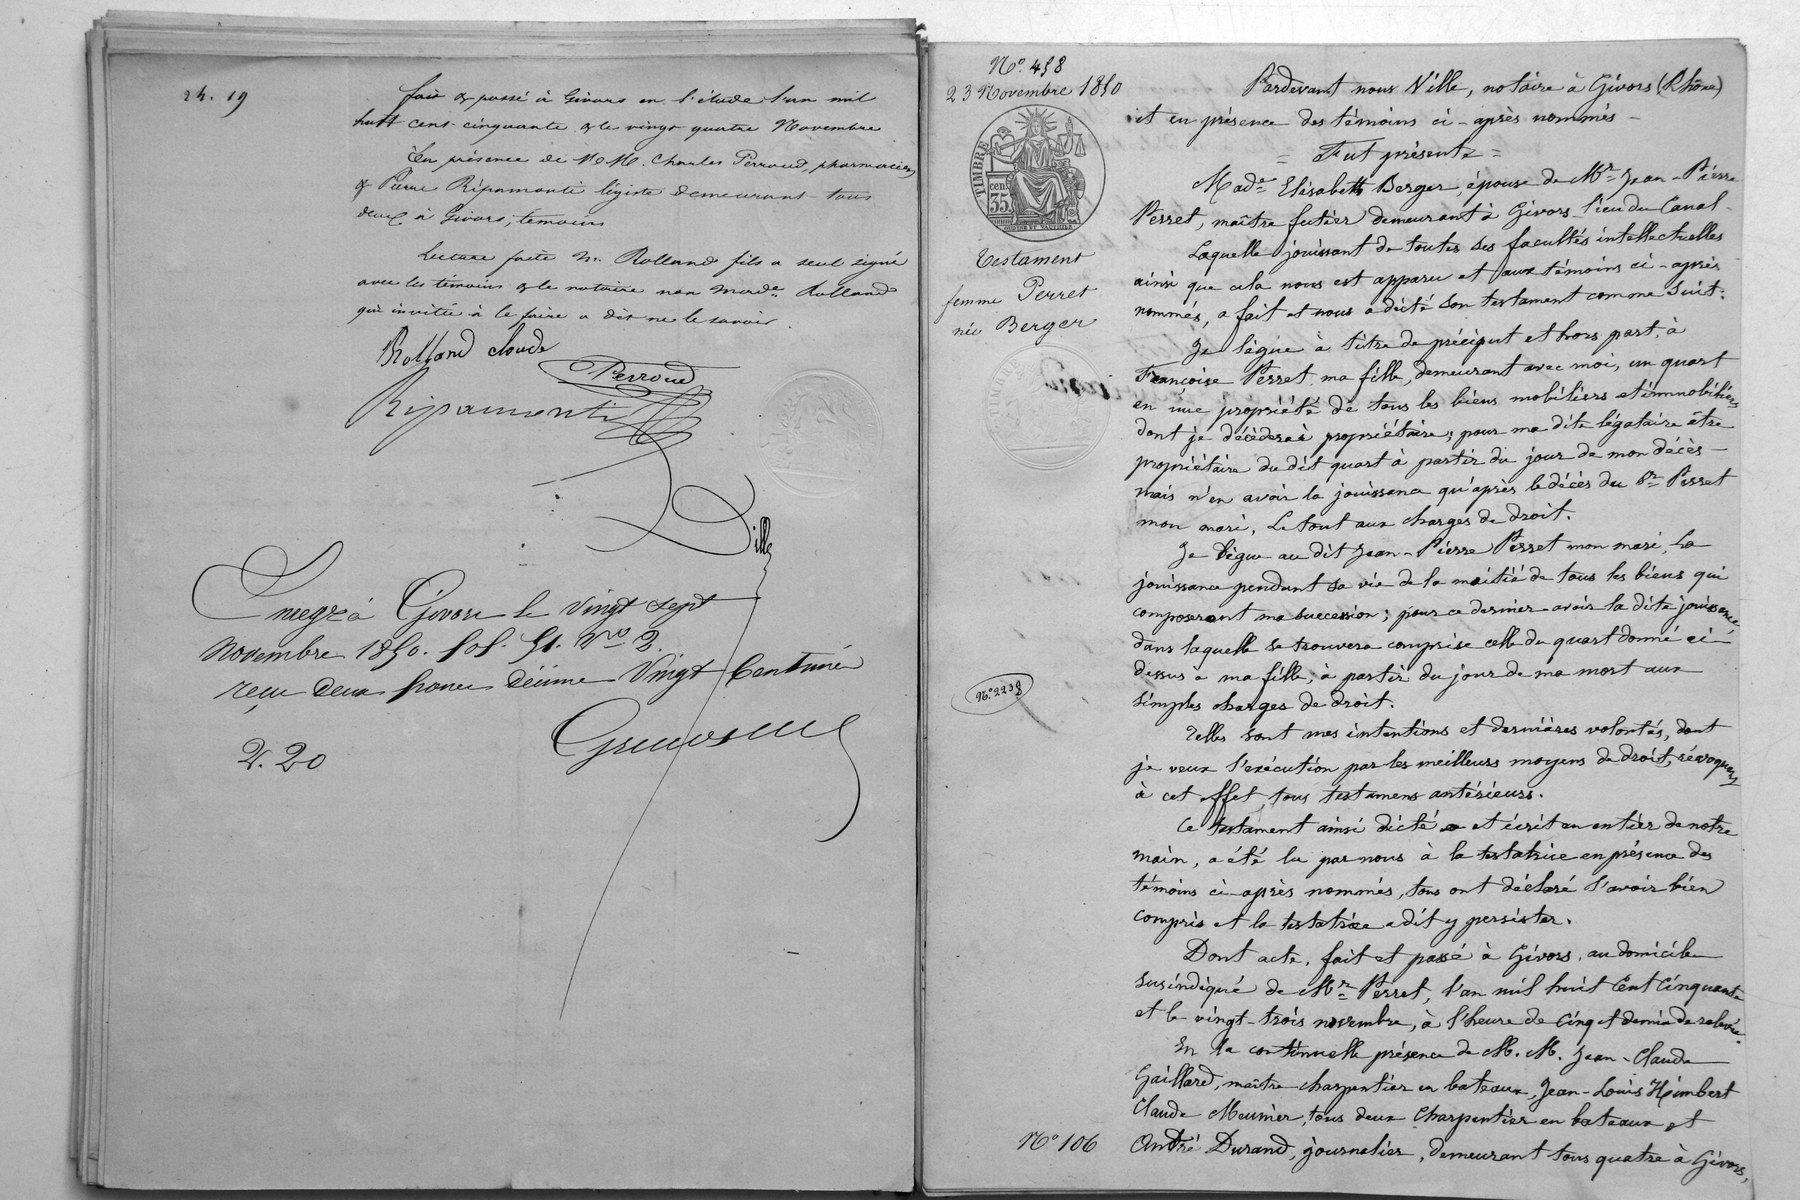 24. 19
fait & passé à Givors en l'étude l'an mil
huit cent cinquante & le vingt quatre Novembre
En présence de M.M. Charles Perroud, pharmacien
& Pierre Ripamonti légiste demeurant tous
deux à Givors, temoins
Lecture faite Mr. Rolland fils a seul signé
avec les témoins & le notaire non Made Rolland
qui invitée à le faire a dit ne le savoir.
Rolland claude
Perroud
Ripamonti
Ville
Enregé à Givors le vingt sept
Novembre 1850. fol. 51. Vo 2.
reçu deux francs décime vingt Centimes
2.20
No. 458
23 Novembre 1850
TIMBRE
cent
35
Testament
femme Perret
née Berger
No. 2238
No 106
Pardevant nous Ville, notaire à Givors (Rhône)
et en présence des témoins ci-après nommés-
= Fut présente =
Made Elisabeth Berger épouse de Mr Jean-Pierre
Perret, maître futier demeurant à Givors lieu du Canal
Laquelle jouissant de toutes ses facultés intellectuelles
ainsi que cela nous est apparu et aux témoins ci-après
nommés, a fait et nous a dicté son testament comme suit:
Je lègue à titre de préciput et hors part, à
Françoise Perret ma fille, demeurant avec moi, un quart
en nue propriété de tous les biens mobiliers et immobiliers
dont je décèderai propriétaire; pour ma dite légataire être
propriétaire du dit quart à partir du jour de mon décès-
mais n'en avoir la jouissance qu'après le décès du Sr Perret
mon mari, Le tout aux charges de droit.
Je lègue au dit Jean-Pierre Perret mon mari, la
jouissance pendant sa vie de la moitié de tous les biens qui
composeront ma succession; pour ce dernier avoir la dite jouissance
dans laquelle se trouvera comprise celle du quart donné ci-
dessus à ma fille, à partir du jour de ma mort aux
simples charges de droit.
Telles sont mes intentions et dernières volontés, dont
je veux l'exécution par les meilleurs moyens de droit, révoquant
à cet effet, tous testamens antérieurs.
Ce testament ainsi dicté et écrit en entier de notre
main, a été lu par nous à la testatrice en présence des
témoins ci-après nommés, tous ont déclaré l'avoir bien
compris et la testatrice a dit y persister.
Dont acte, fait et passé à Givors, au domicile
susindiqué de Mr Perret, l'an mil huit Cent Cinquante
et le vingt-trois novembre, à l'heure de cinq et demie de relevée.
En la continuelle présence de M.M. Jean-Claude
Gaillard, maître charpentier en bateaux, Jean-Louis Himbert
Claude Meunier, tous deux Charpentier en bateaux et
André Durand, journalier, demeurant tous quatre à Givors,